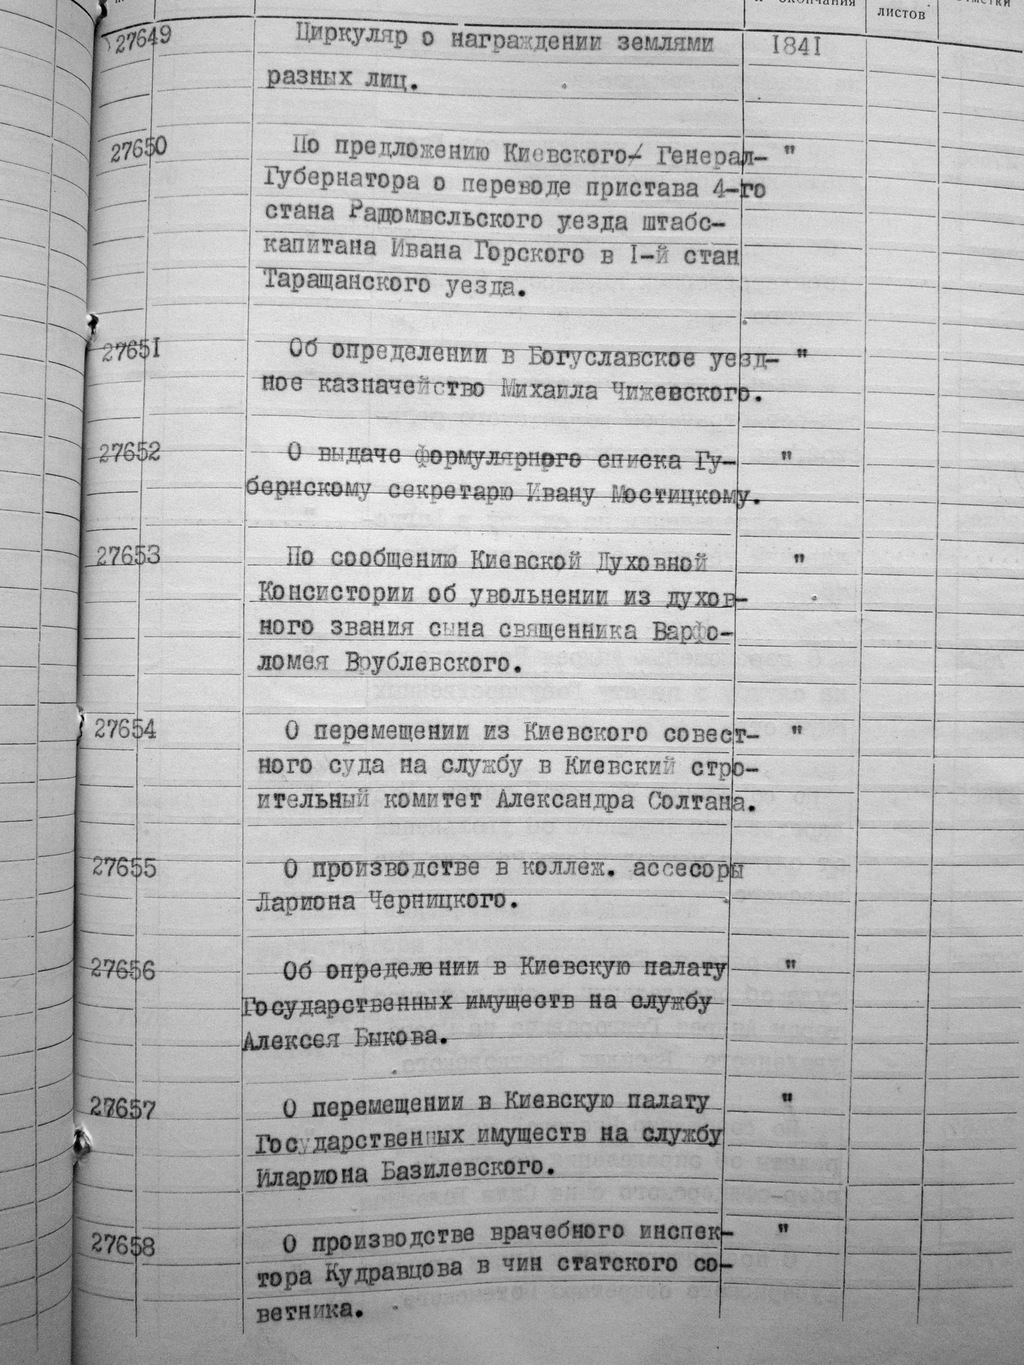 и окончания
листов
27649 Циркуляр о награждении землями 1841
разных лиц.
27650 По предложению Киевского/ Генерал- "
Губернатора о переводе пристава 4-го
стана Радомысльского уезда штабс-
капитана Ивана Горского в I-й стан
Таращанского уезда.
27651 Об определении в Богуславское уезд- "
ное казначейство Михаила Чижевского.
27652 О выдаче формулярного списка Гу- "
бернскому секретарю Ивану Мостицкому.
27653 По сообщению Киевской Духовной "
Консистории об увольнении из духов-
ного звания сына священника Варфо-
ломея Врублевского.
27654 О перемещении из Киевского совест- "
ного суда на службу в Киевский стро-
ительный комитет Александра Солтана.
27655 О производстве в коллеж. ассесоры
Лариона Черницкого.
27656 Об определении в Киевскую палату "
Государственных имуществ на службу
Алексея Быкова.
27657 О перемещении в Киевскую палату "
Государственных имуществ на службу
Илариона Базилевского.
27658 О производстве врачебного инспек- "
тора Кудравцова в чин статского со-
ветника.